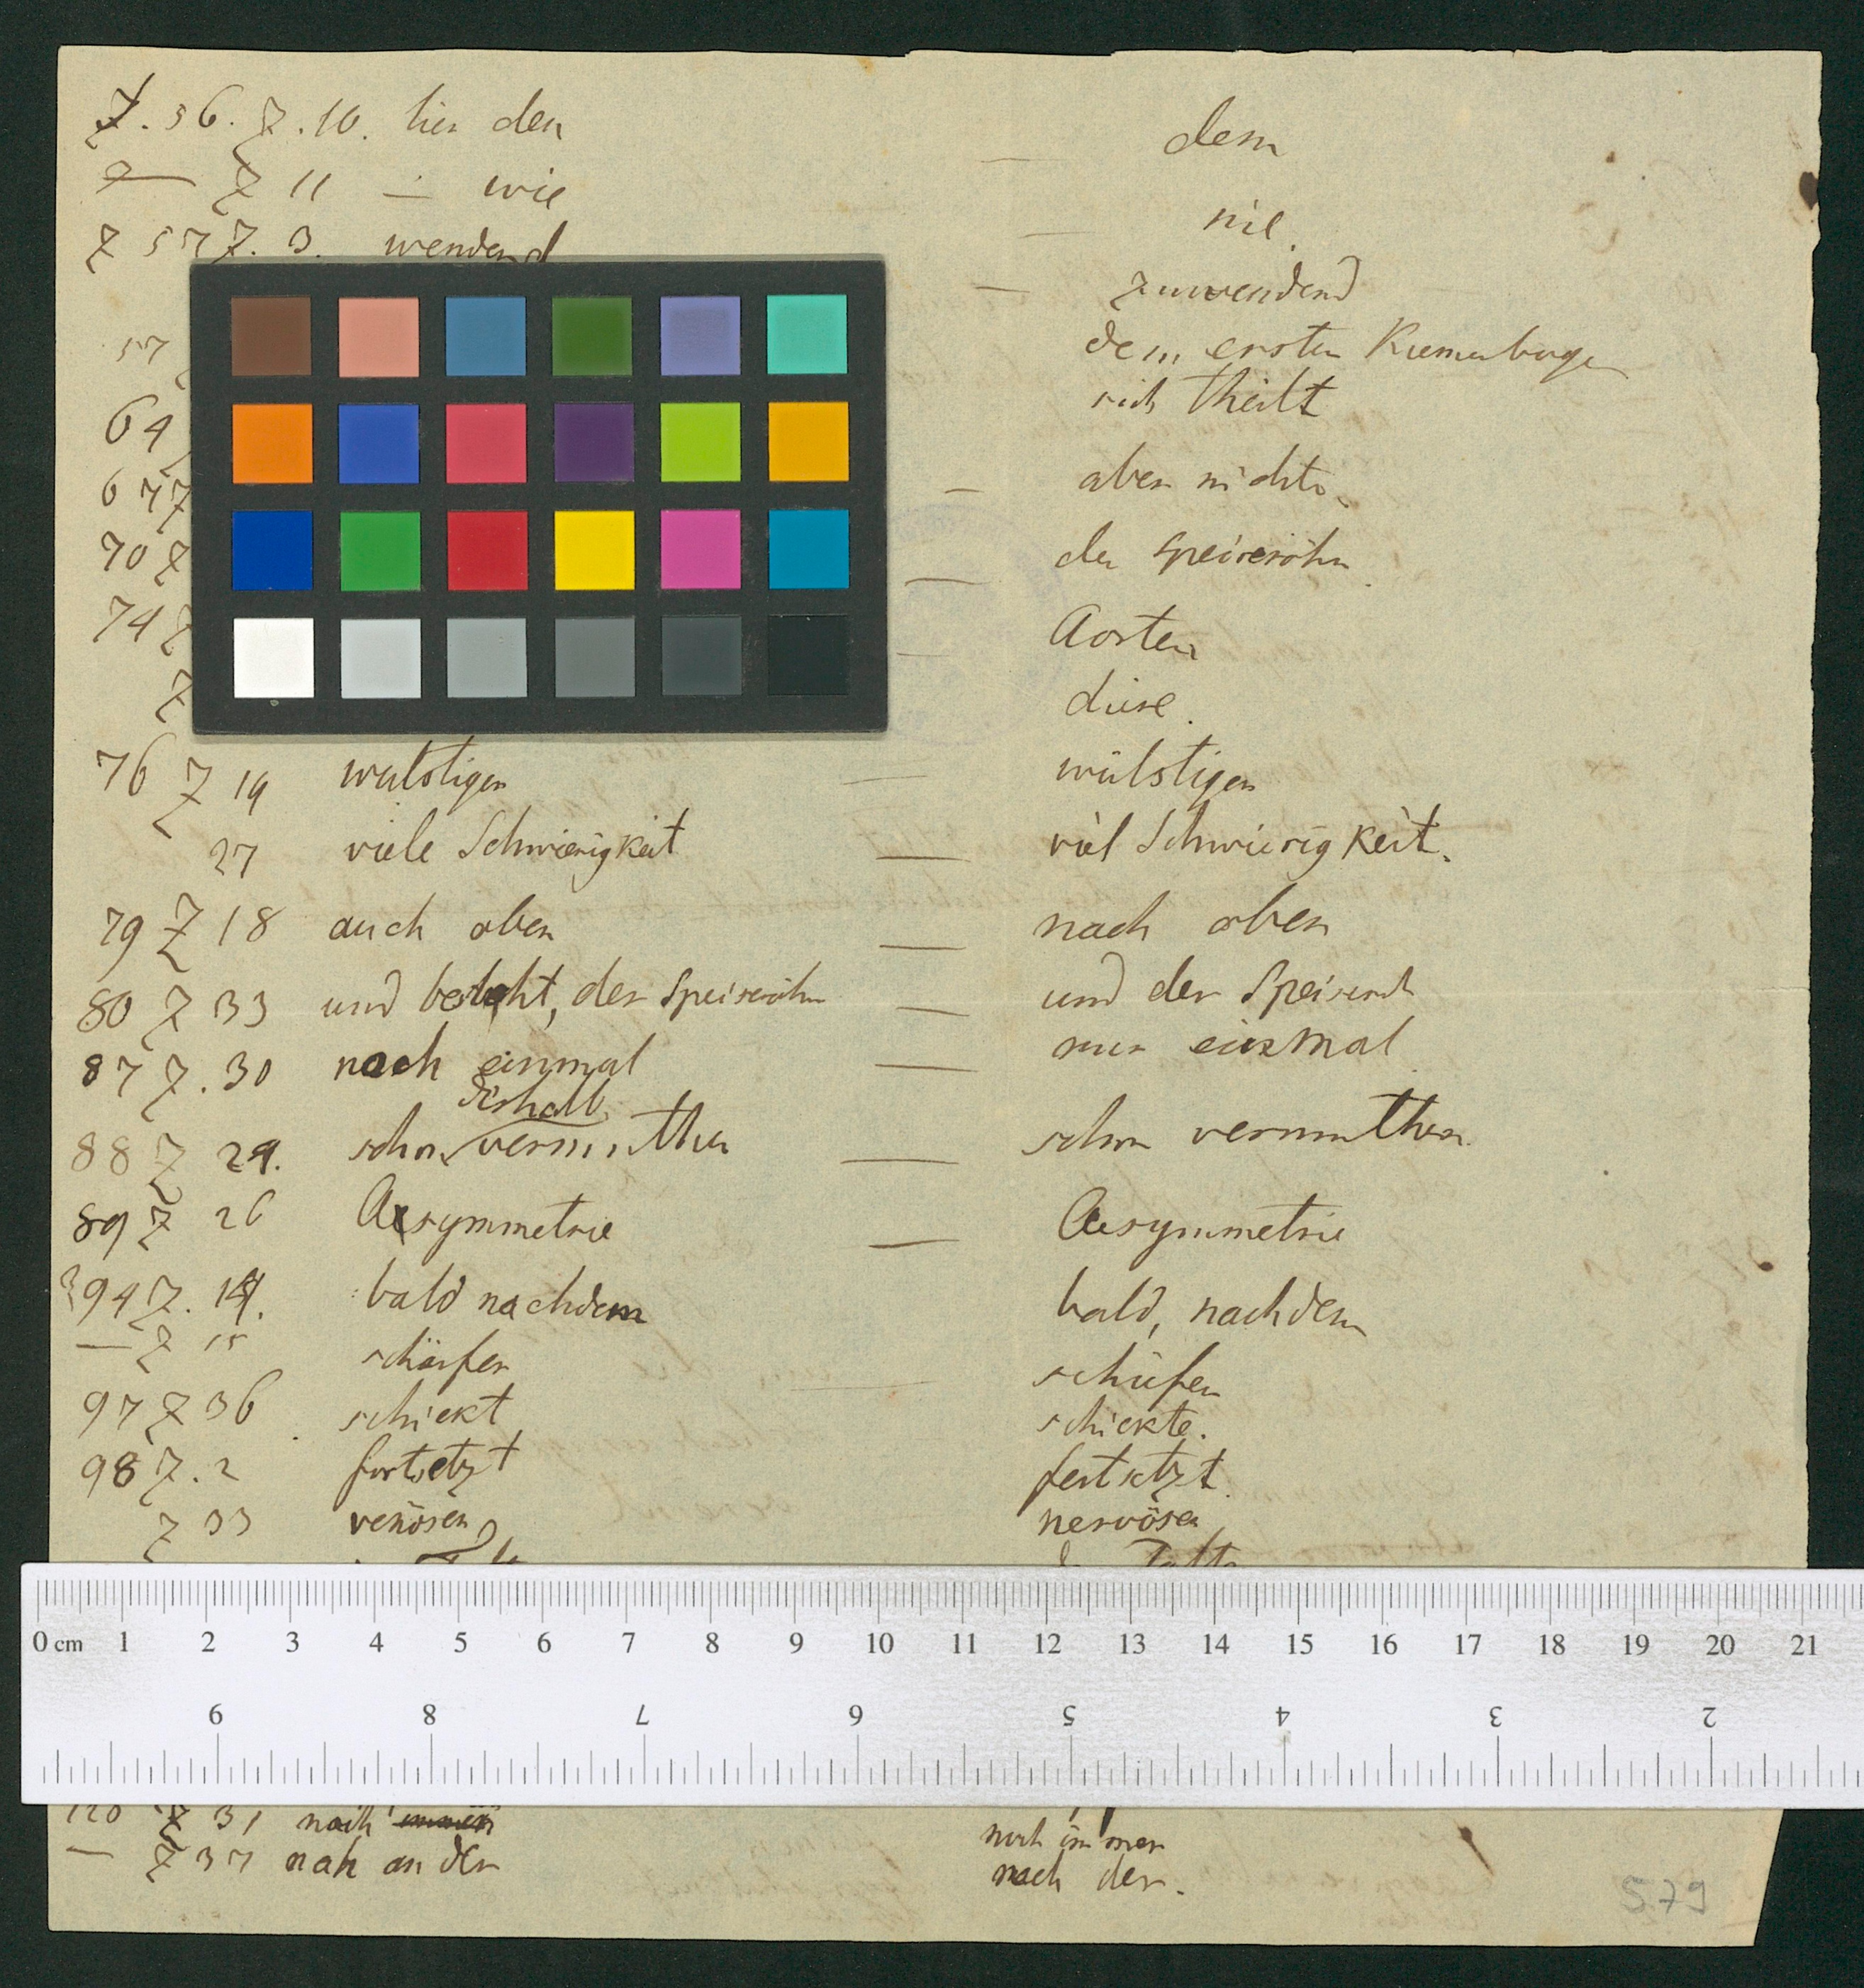 Z. 56. Z. 10. hier den — dem
— Z 11 — wie — nie.
Z 57 Z. 3. wendend — zuwendend
57 dem ersten Kiemenbogen
64 sich theilt
67 Z — aber nichts
70 Z — der Speiseröhre.
74 Z — Aorten
Z diese.
76 Z 19 wulstigen — wülstigen
27 viele Schwierigkeit — viel Schwierigkeit.
79 Z 18 auch oben — nach oben
80 Z 33 und besteht, der Speiseröhre — und der Speiseröh
87 Z. 30 noch einmal — nur einmal
deshalb
88 Z 29. schon vermuthen — schon vermuthen.
89 Z 26 Assymmetrie — Assymmetrie
94 Z. 14. bald nachdem bald, nachdem
— Z 15 schärfen — schüfen
97 Z 36 schickt schickte.
98 Z. 2 fortsetzt festsetzt.
Z 33 venösen nervösen
0 cm 1 2 3 4 5 6 7 8 9 10 11 12 13 14 15 16 17 18 19 20 21
9 8 7 6 5 4 3 2
120 Z 31 noch immer noch immer
— Z 37 nah an der nach der.
579